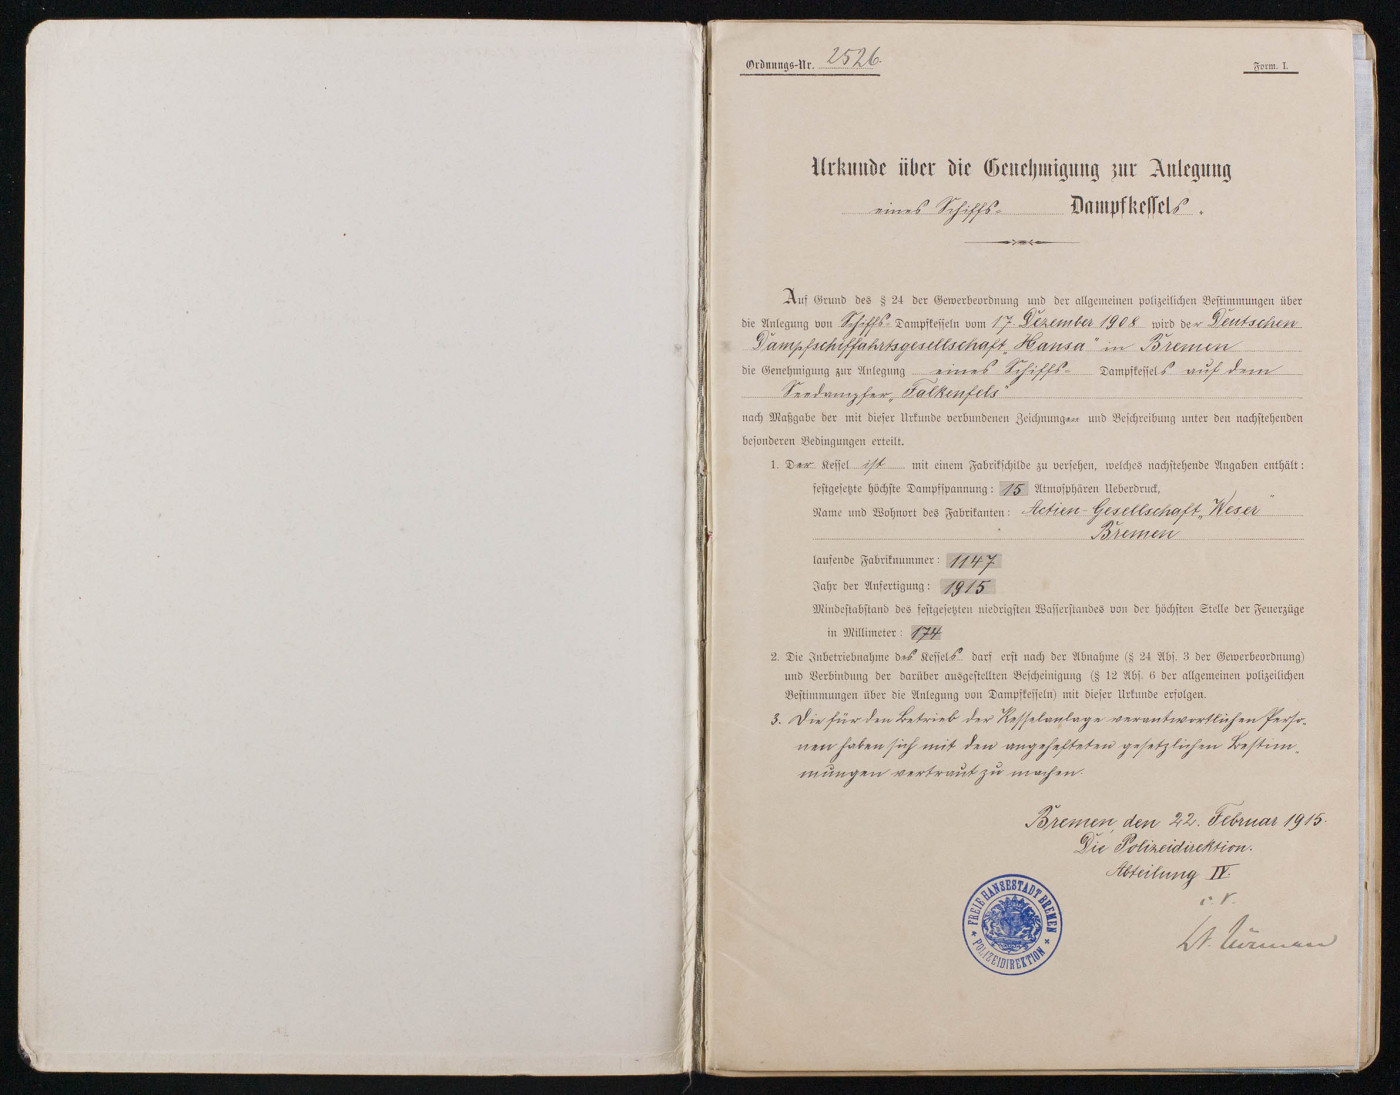 Ordnungs-Nr. 2526.
Form. I.
Urkunde über die Genehmigung zur Anlegung
eines Schiffs- Dampfkessels.
Auf Grund des § 24 der Gewerbeordnung und der allgemeinen polizeilichen Bestimmungen über
die Anlegung von Schiffs- Dampfkesseln vom 17. Dezember 1908 wird der Deutschen
Dampfschiffahrtsgesellschaft „Hansa" in Bremen
die Genehmigung zur Anlegung eines Schiffs- Dampfkessels auf dem
Seedampfer „Falkenfels"
nach Maßgabe der mit dieser Urkunde verbundenen Zeichnungen und Beschreibung unter den nachstehenden
besonderen Bedingungen erteilt.
1. Der Kessel ist mit einem Fabrikschilde zu versehen, welches nachstehende Angaben enthält:
festgesetzte höchste Dampfspannung: 15 Atmosphären Ueberdruck,
Name und Wohnort des Fabrikanten: Actien-Gesellschaft „Weser"
Bremen
laufende Fabriknummer: 1147
Jahr der Anfertigung: 1915
Mindestabstand des festgesetzten niedrigsten Wasserstandes von der höchsten Stelle der Feuerzüge
in Millimeter: 174
2. Die Inbetriebnahme des Kessels darf erst nach der Abnahme (§ 24 Abs. 3 der Gewerbeordnung)
und Verbindung der darüber ausgestellten Bescheinigung (§ 12 Abs. 6 der allgemeinen polizeilichen
Bestimmungen über die Anlegung von Dampfkesseln) mit dieser Urkunde erfolgen.
3. Die für den Betrieb der Kesselanlage verantwortlichen Perso-
nen haben sich mit den angehefteten gesetzlichen Bestim-
mungen vertraut zu machen.
Bremen, den 22. Februar 1915.
Die Polizeidirektion.
Abteilung IV.
i. V.
Dr.
FREIE HANSESTADT BREMEN
* POLIZEIDIREKTION *